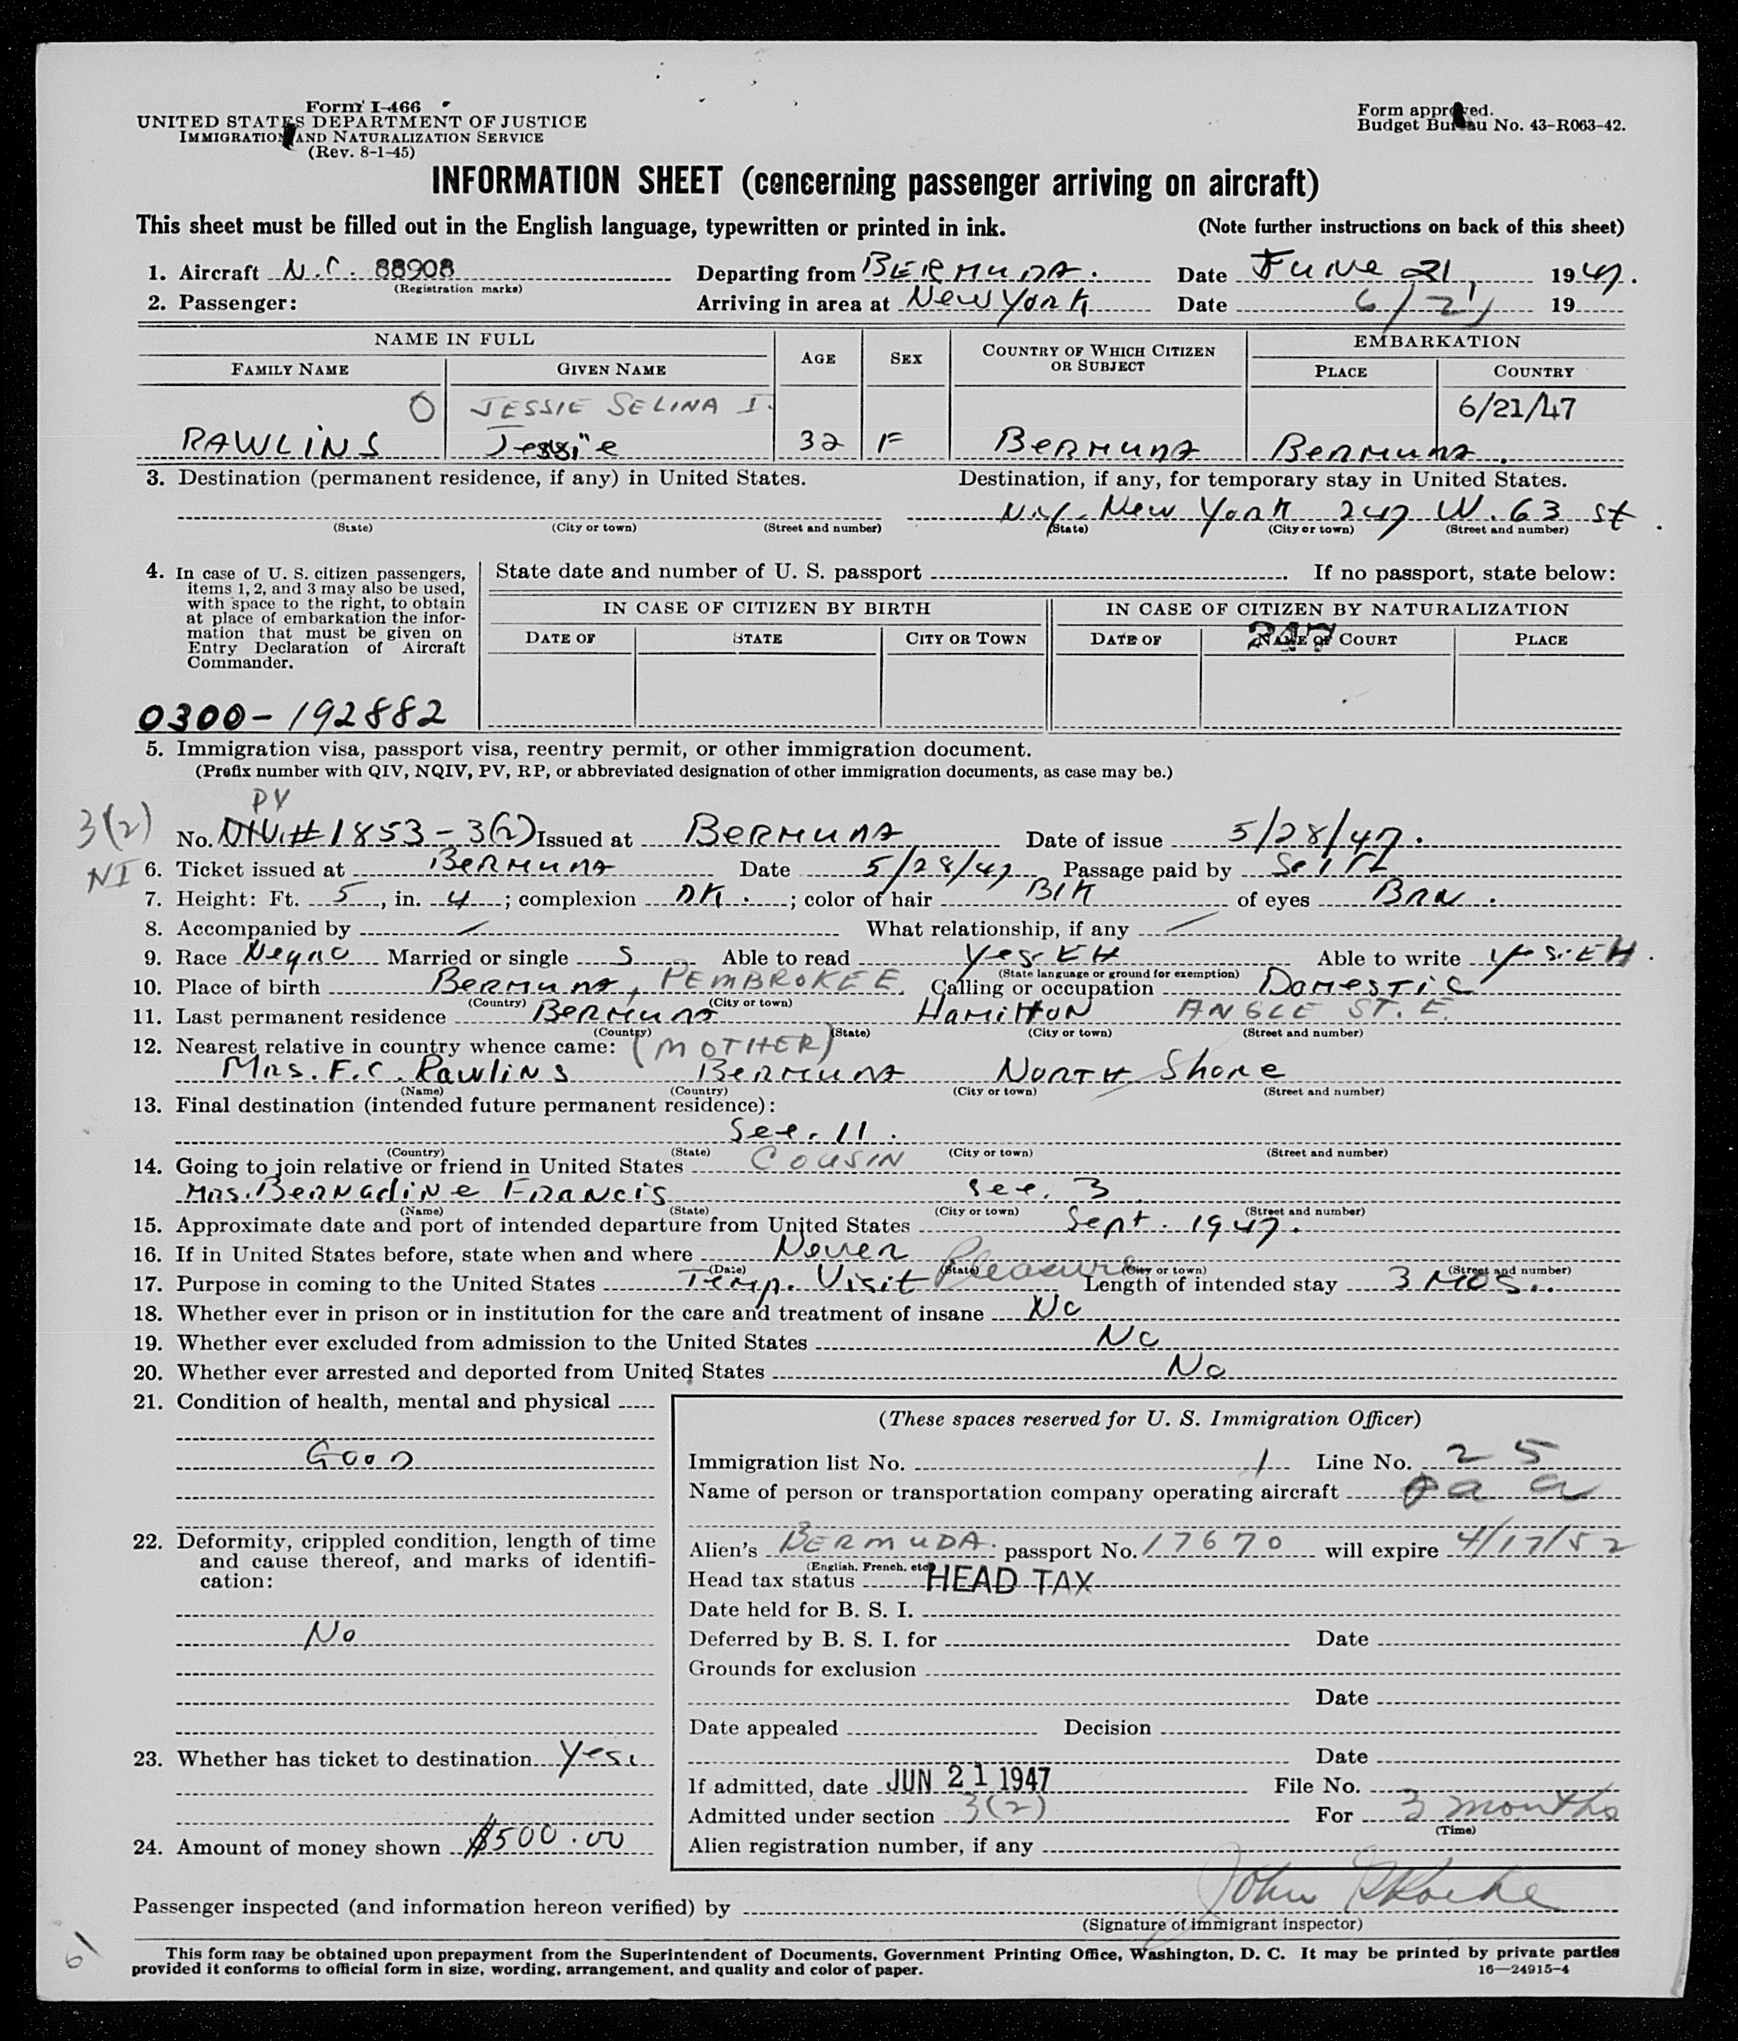 Form I-466
UNITED STATES DEPARTMENT OF JUSTICE
IMMIGRATION AND NATURALIZATION SERVICE
(Rev. 8-1-45)
Form approved.
Budget Bureau No. 43-R063-42.
INFORMATION SHEET (concerning passenger arriving on aircraft)
This sheet must be filled out in the English language, typewritten or printed in ink. (Note further instructions on back of this sheet)
1. Aircraft N.C. 88908 Departing from BERMUDA. Date June 21, 1947.
(Registration marks)
2. Passenger: Arriving in area at New York Date 6/21 19
NAME IN FULL
FAMILY NAME GIVEN NAME AGE SEX COUNTRY OF WHICH CITIZEN OR SUBJECT
EMBARKATION
PLACE COUNTRY
O JESSIE SELINA I. 6/21/47
RAWLINS Jessie 32 F BERMUDA BERMUDA.
3. Destination (permanent residence, if any) in United States. Destination, if any, for temporary stay in United States.
N.Y. New York 247 W. 63 St.
(State) (City or town) (Street and number) (State) (City or town) (Street and number)
4. In case of U. S. citizen passengers,
items 1, 2, and 3 may also be used,
with space to the right, to obtain
at place of embarkation the infor-
mation that must be given on
Entry Declaration of Aircraft
Commander.
0300-192882
State date and number of U. S. passport If no passport, state below:
IN CASE OF CITIZEN BY BIRTH IN CASE OF CITIZEN BY NATURALIZATION
247
DATE OF STATE CITY OR TOWN DATE OF NAME OF COURT PLACE
5. Immigration visa, passport visa, reentry permit, or other immigration document.
(Prefix number with QIV, NQIV, PV, RP, or abbreviated designation of other immigration documents, as case may be.)
PV
3(2) No. NIV.#1853-3(2) Issued at BERMUDA Date of issue 5/28/47.
NI 6. Ticket issued at BERMUDA Date 5/28/47 Passage paid by Self
7. Height: Ft. 5, in. 4; complexion DK.; color of hair Blk of eyes BRN.
8. Accompanied by — What relationship, if any —
9. Race Negro Married or single S Able to read Yes-EH Able to write yes-EH.
(State language or ground for exemption)
10. Place of birth BERMUDA, PEMBROKE E. Calling or occupation DOMESTIC
(Country) (City or town)
11. Last permanent residence BERMUDA HAMILTON ANGLE ST. E.
(Country) (State) (City or town) (Street and number)
12. Nearest relative in country whence came: (MOTHER)
Mrs. F.C. Rawlins BERMUDA NORTH Shore
(Name) (Country) (City or town) (Street and number)
13. Final destination (intended future permanent residence):
See. 11.
(Country) (State) (City or town) (Street and number)
14. Going to join relative or friend in United States COUSIN
Mrs. Bernadine Francis See. 3
(Name) (State) (City or town) (Street and number)
15. Approximate date and port of intended departure from United States Sept. 1947.
16. If in United States before, state when and where Never
(Date) (State) (City or town) (Street and number)
17. Purpose in coming to the United States Temp. Visit Pleasure Length of intended stay 3 MOS..
18. Whether ever in prison or in institution for the care and treatment of insane No
19. Whether ever excluded from admission to the United States No
20. Whether ever arrested and deported from United States No
21. Condition of health, mental and physical
Good
22. Deformity, crippled condition, length of time
and cause thereof, and marks of identifi-
cation:
No
23. Whether has ticket to destination Yes.
24. Amount of money shown $500.00
(These spaces reserved for U. S. Immigration Officer)
Immigration list No. 1 Line No. 25
Name of person or transportation company operating aircraft P a a
Alien's BERMUDA. passport No. 17670 will expire 4/17/52
(English, French, etc.)
Head tax status HEAD TAX
Date held for B. S. I.
Deferred by B. S. I. for Date
Grounds for exclusion
Date
Date appealed Decision
Date
If admitted, date JUN 21 1947 File No.
Admitted under section 3(2) For 3 months
(Time)
Alien registration number, if any
Passenger inspected (and information hereon verified) by John
(Signature of immigrant inspector)
This form may be obtained upon prepayment from the Superintendent of Documents, Government Printing Office, Washington, D. C. It may be printed by private parties
provided it conforms to official form in size, wording, arrangement, and quality and color of paper.
16—24915-4